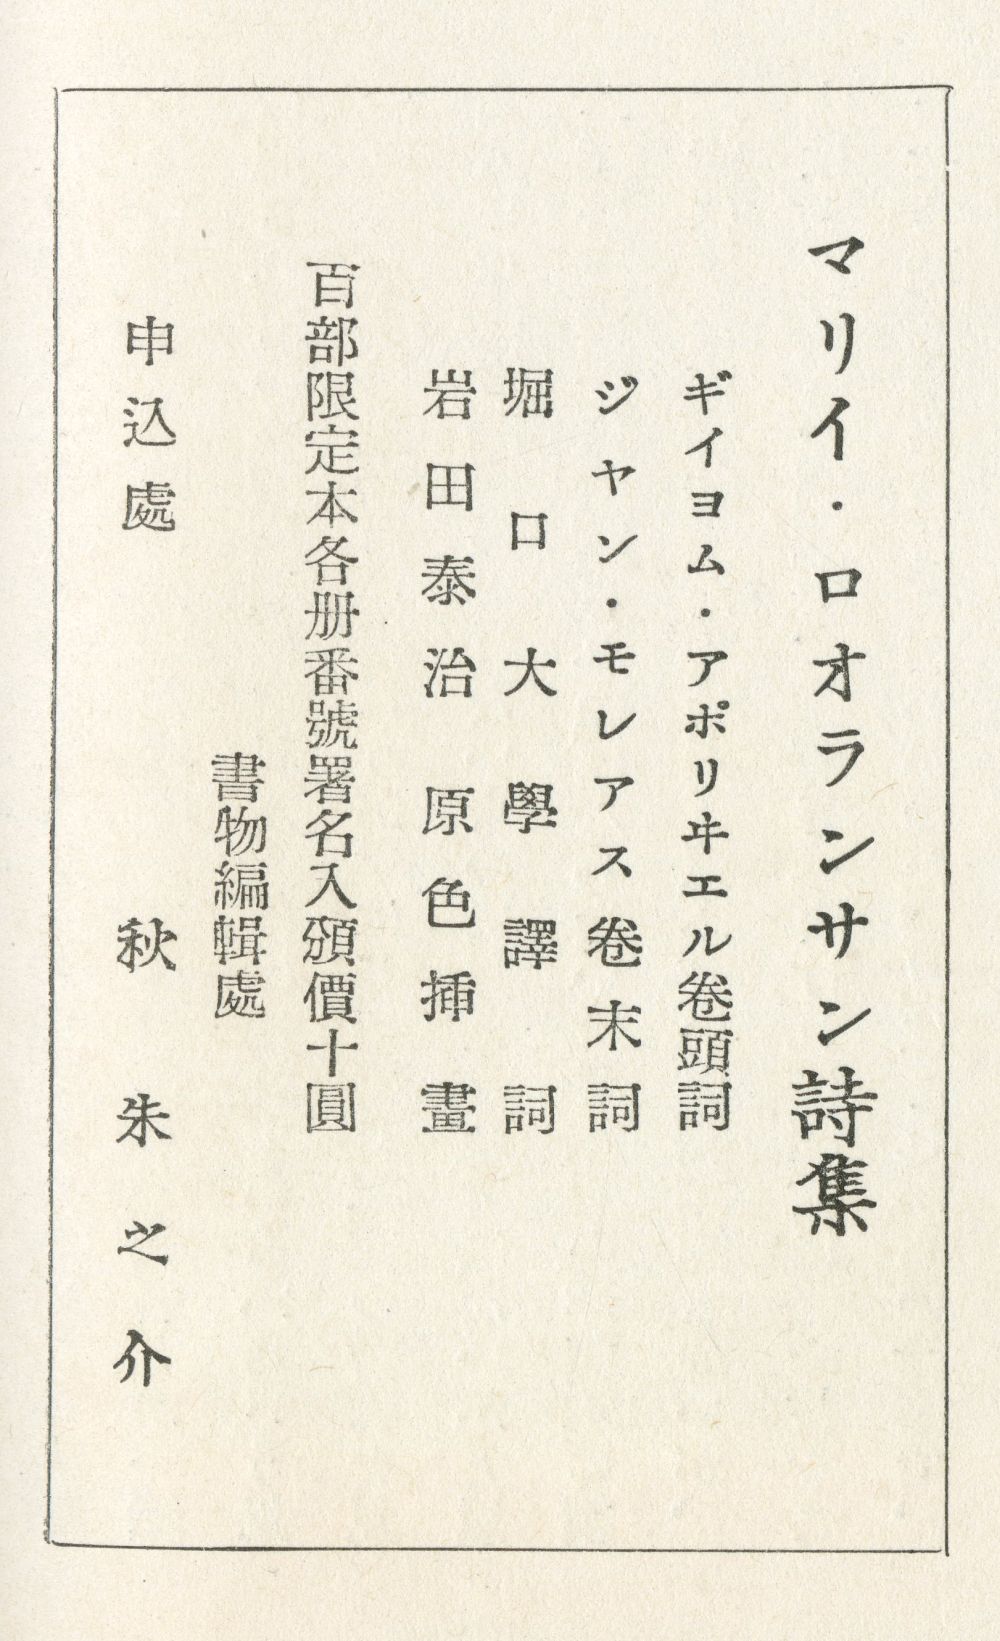 マリイ・ロオランサン詩集
ギイヨム・アポリヰエル卷頭詞
ジヤン・モレアス卷末詞
堀口大學譯詞
岩田泰治 原色挿畫
百部限定本各册番號署名入頒價十圓
書物編輯處
申込處 秋朱之介